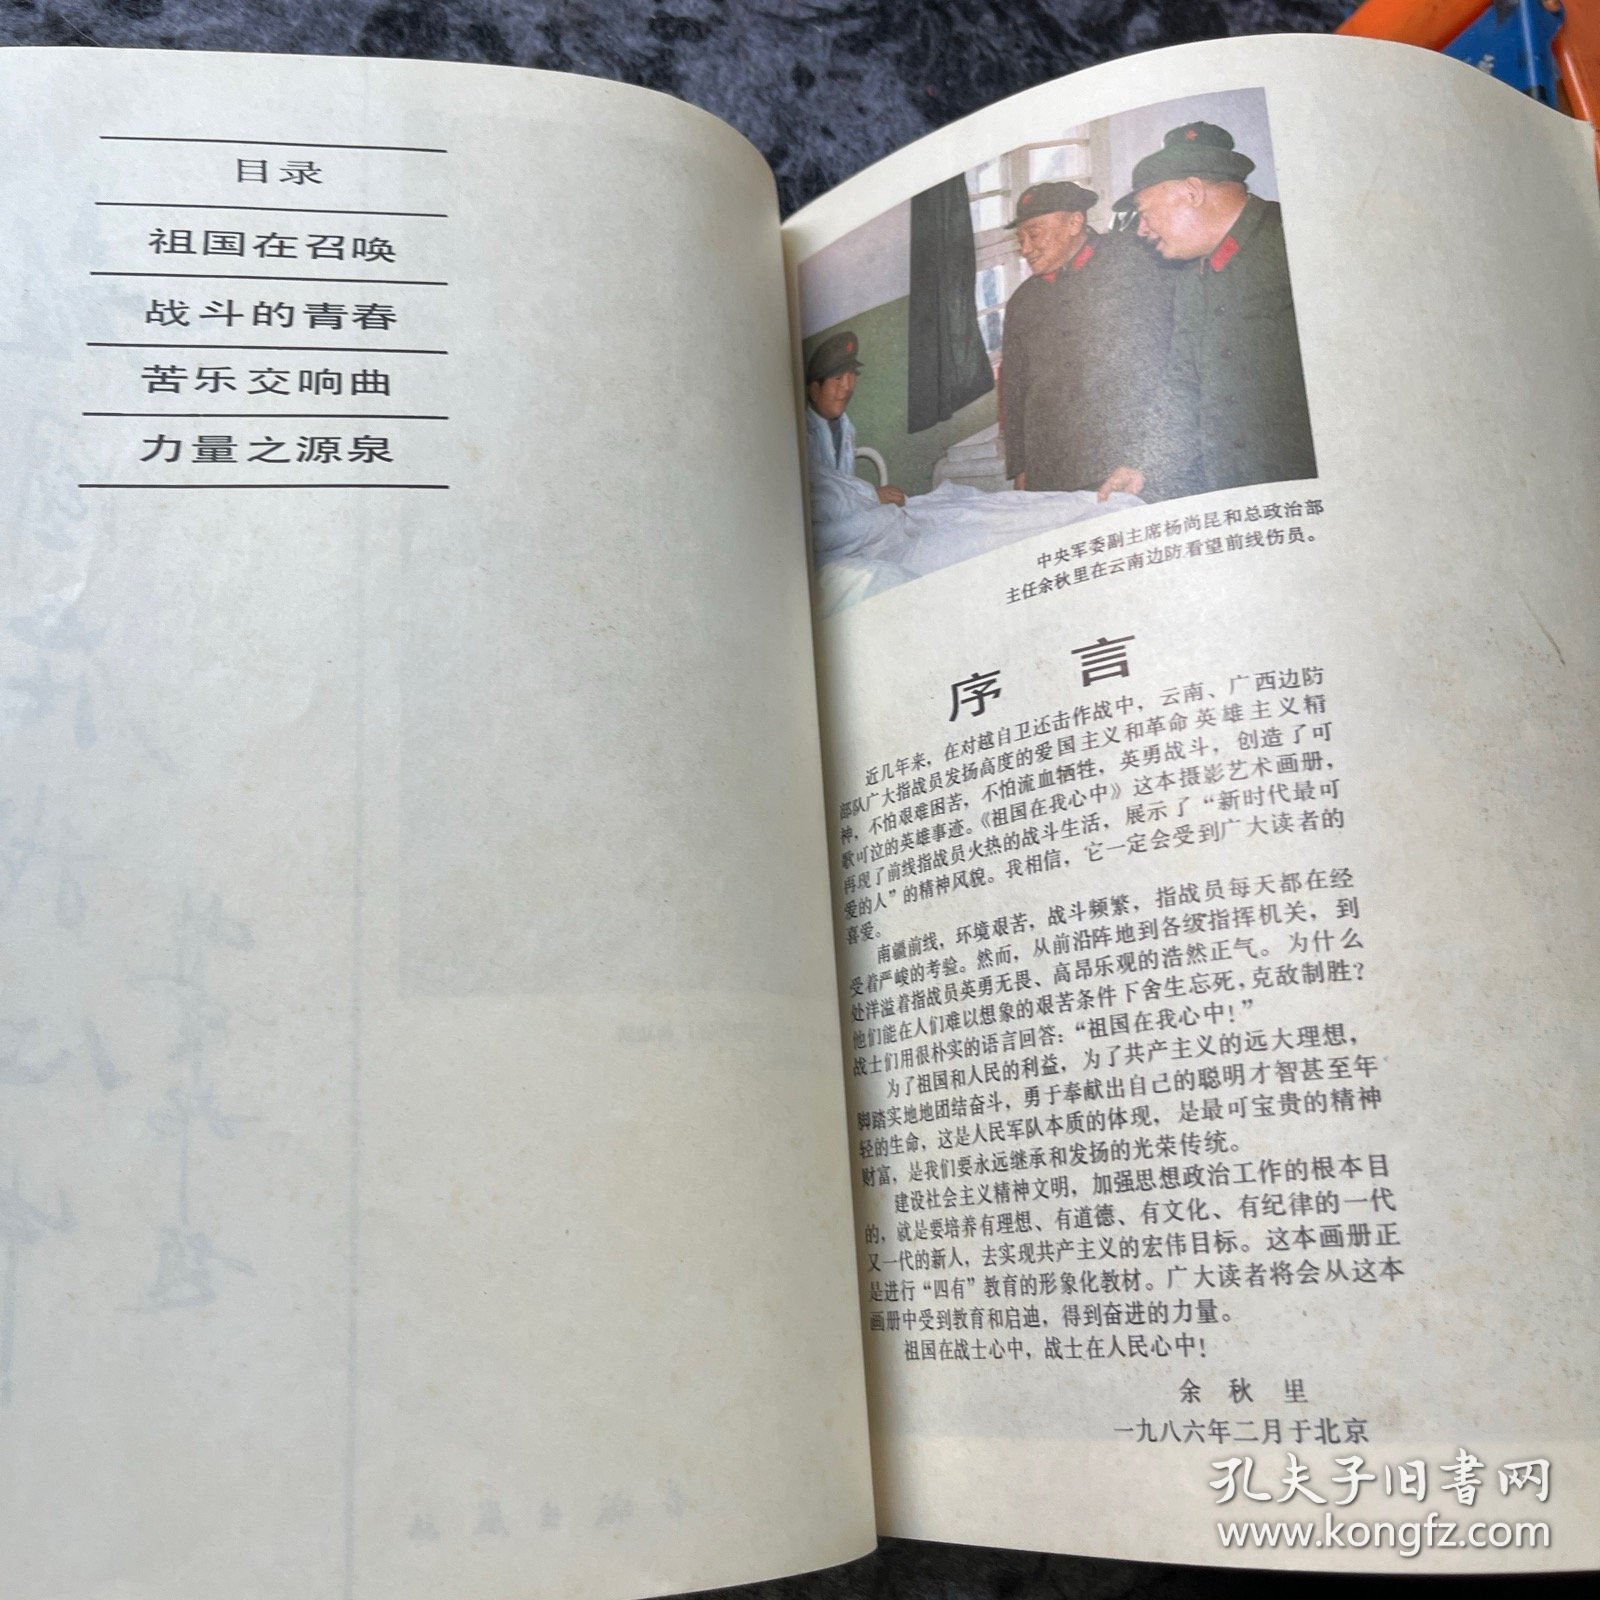 目录
祖国在召唤
战斗的青春
苦乐交响曲
力量之源泉
中央军委副主席杨尚昆和总政治部
主任余秋里在云南边防看望前线伤员。
序 言
近几年来，在对越自卫还击作战中，云南、广西边防
部队广大指战员发扬高度的爱国主义和革命英雄主义精
神，不怕艰难困苦，不怕流血牺牲，英勇战斗，创造了可
歌可泣的英雄事迹。《祖国在我心中》这本摄影艺术画册，
再现了前线指战员火热的战斗生活，展示了“新时代最可
爱的人”的精神风貌。我相信，它一定会受到广大读者的
喜爱。
南疆前线，环境艰苦，战斗频繁，指战员每天都在经
受着严峻的考验。然而，从前沿阵地到各级指挥机关，到
处洋溢着指战员英勇无畏、高昂乐观的浩然正气。为什么
他们能在人们难以想象的艰苦条件下舍生忘死，克敌制胜？
战士们用很朴实的语言回答：“祖国在我心中！”
为了祖国和人民的利益，为了共产主义的远大理想，
脚踏实地地团结奋斗，勇于奉献出自己的聪明才智甚至年
轻的生命，这是人民军队本质的体现，是最可宝贵的精神
财富，是我们要永远继承和发扬的光荣传统。
建设社会主义精神文明，加强思想政治工作的根本目
的，就是要培养有理想、有道德、有文化、有纪律的一代
又一代的新人，去实现共产主义的宏伟目标。这本画册正
是进行“四有”教育的形象化教材。广大读者将会从这本
画册中受到教育和启迪，得到奋进的力量。
祖国在战士心中，战士在人民心中！
余 秋 里
一九八六年二月于北京
孔夫子旧书网
www.kongfz.com